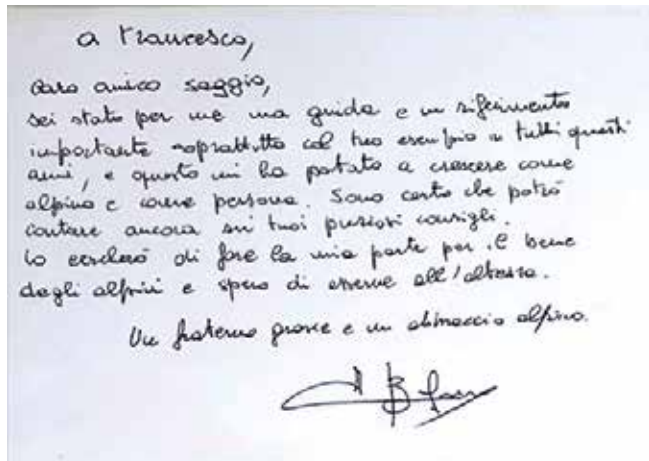 a Francesco,
Caro amico saggio,
sei stato per me una guida e un riferimento
importante soprattutto col tuo esempio in tutti questi
anni, e questo mi ha portato a crescere come
alpino e come persona. Sono certo che potrò
contare ancora sui tuoi preziosi consigli.
Io cercherò di fare la mia parte per il bene
degli alpini e spero di esserne all'altezza.
Un fraterno grazie e un abbraccio alpino.